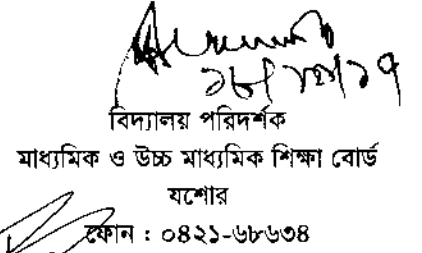 বিদ্যালয় পরিদর্শক
মাধ্যমিক ও উচ্চ মাধ্যমিক শিক্ষা বোর্ড
যশোর
ফোন : ০৪২১-৬৮৬৩৪